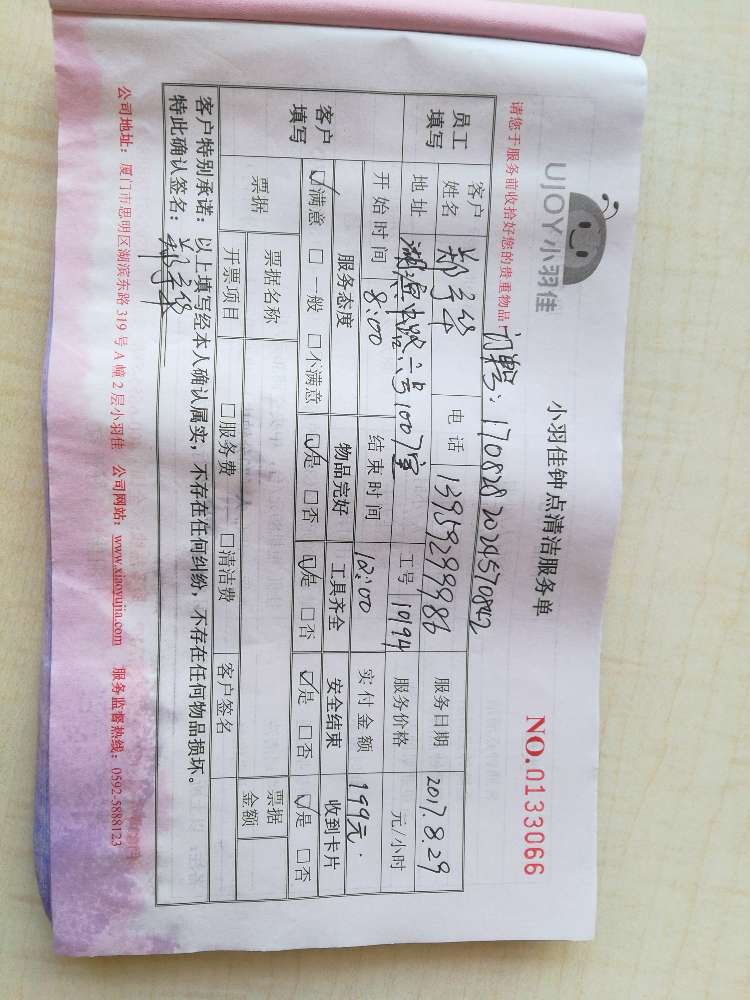 UJOY小羽佳
小羽佳钟点清洁服务单
NO.0133066
请您于服务前收拾好您的贵重物品
1708282024570842
员工填写 客户姓名 电话 13959299986 服务日期 2017.8.29
地址 六号1007室 工号 1994 服务价格 元/小时
开始时间 8:00 结束时间 12:00 实付金额 199元.
客户填写 服务态度 物品完好 工具齐全 安全结束 收到卡片
☑满意 □一般 □不满意 ☑是 □否 ☑是 □否 ☑是 □否 ☑是 □否
票据 票据名称 票据金额
开票项目 □服务费 □清洁费 客户签名
客户特别承诺：以上填写经本人确认属实，不存在任何纠纷，不存在任何物品损坏。
特此确认签名：
公司地址：厦门市思明区湖滨东路319号A幢2层小羽佳 公司网站：www.xiaoyujia.com 服务监督热线：0592-5888123